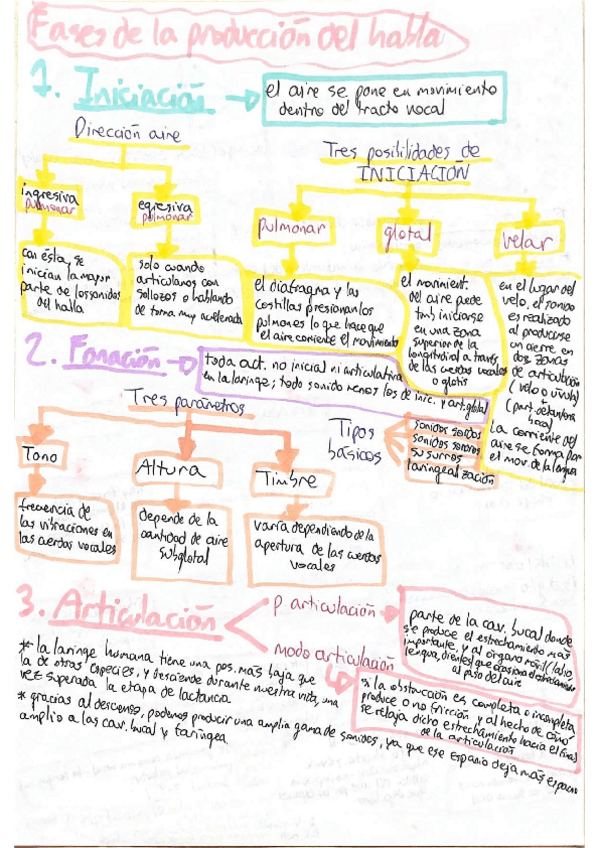 Fases de la producción del habla
1. Iniciación
el aire se pone en movimiento
dentro del tracto vocal
Dirección aire
ingresiva
pulmonar
egresiva
pulmonar
con ésta, se
inician la mayor
parte de los sonidos
del habla
solo cuando
articulamos con
sollozos o hablando
de forma muy acelerada
Tres posibilidades de
INICIACIÓN
pulmonar
glotal
velar
el diafragma y las
costillas presionan los
pulmones lo que hace que
el aire comience el movimiento
el moviment.
del aire puede
tmb iniciarse
en una zona
superior de la
longitudinal a través
de las cuerdas vocales
o glotis
en el lugar del
velo, el sonido
es realizado
al producirse
un cierre en
dos zonas
de articulación
(velo o úvula)
bucal)
La corriente del
aire se forma por
el mov. de la lengua
2. Fonación
toda act. no inicial ni articulativa
en la laringe; todo sonido menos los de inic. y art. glotal
Tres parámetros
Tono
Altura
Timbre
frecuencia de
las vibraciones en
las cuerdas vocales
depende de la
cantidad de aire
subglotal
varía dependiendo de la
apertura de las cuerdas
vocales
Tipos
básicos
sonidos sordos
sonidos sonoros
susurros
laringealización
3. Articulación
p articulación
modo articulación
parte de la cav. bucal donde
se produce el estrechamiento más
importante, y al órgano móvil (labio,
lengua, dientes) que ocasiona
al paso del aire
si la obstrucción es completa o incompleta
produce o no fricción y al hecho de cómo
se relaja dicho estrechamiento hacia el final
de la articulación
* la laringe humana tiene una pos. más baja que
la de otras especies, y desciende durante nuestra vida, una
vez superada la etapa de lactancia
* gracias al descenso, podemos producir una amplia gama de sonidos, ya que ese espacio deja más espacio
amplio a las cav. bucal y faríngea